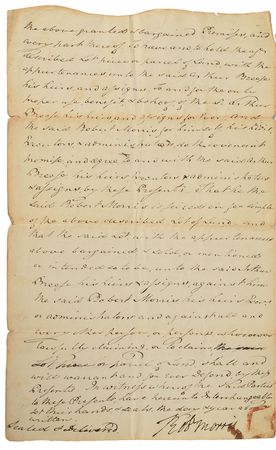 the above granted & bargained Premises, and
every part thereof To Have and to hold the afore
described Lot piece or parcel of Land with the
appurtenances, unto the said Arthur Breese
his heirs, and assigns To and for the only
proper use benefit & behoof of the sd. Arthur
Breese his heirs and assigns for ever and
the said Robert Morris for himself his heirs
Executors & administrators do th covenant
promise and agree To and with the said Arthur
Breese his heirs Executors & administrators
& assigns, by these Presents That he the
said Robert Morris is seized in fee simple
of the above described Lot of Land and
that the said Lot, with the appurtenances
above bargained & sold, or mentioned
or intended to be, unto the said Arthur
Breese his heirs & assigns, against him
the said Robert Morris his heirs Executors
or administrators and against all and
every other person, or persons whomsoever
lawfully claiming, or To claim
Lot Piece or parcel of Land, shall and
will warrant and for ever defend, by these
Presents In witness whereof the said Parties
to these Presents have hereunto Interchangeably
set their hands & seals the day & year above
written
Sealed & delivered
Robt Morris